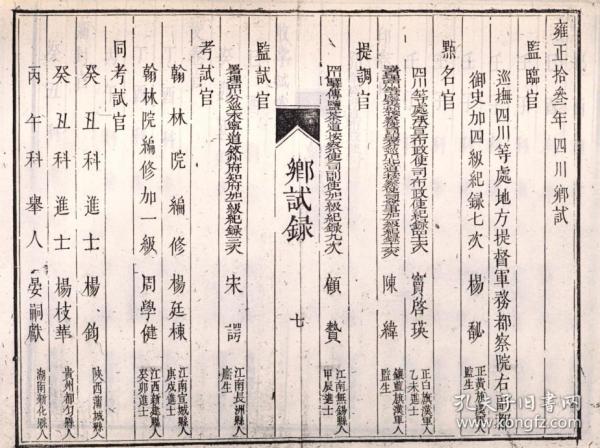 雍正拾叁年四川鄉試
監臨官
巡撫四川等處地方提督軍務都察院右副都
御史加四級紀錄七次 楊馝 正黃旗漢軍人監生
點名官
四川等處承宣布政使司布政使紀錄 次 竇啓瑛 正白旗漢軍人乙未進士
陳緯 鑲藍旗漢軍人監生
提調官
驛傳鹽茶道按察使司副使加 級紀錄九次 顧贄 江南無錫縣人甲辰進士
鄉試錄
七
監試官
永寧道 加 級紀錄 次 宋諤 江南長洲縣人監生
考試官
翰林院編修 楊廷棟 江南宣城縣人庚戌進士
翰林院編修加一級 周學健 江西新建縣人癸卯進士
同考試官
癸丑科進士 楊鈞 陝西蒲城縣人
癸丑科進士 楊枝華 貴州都勻縣人
丙午科舉人 晏嗣獻 湖南新化縣人
孔夫子舊書網